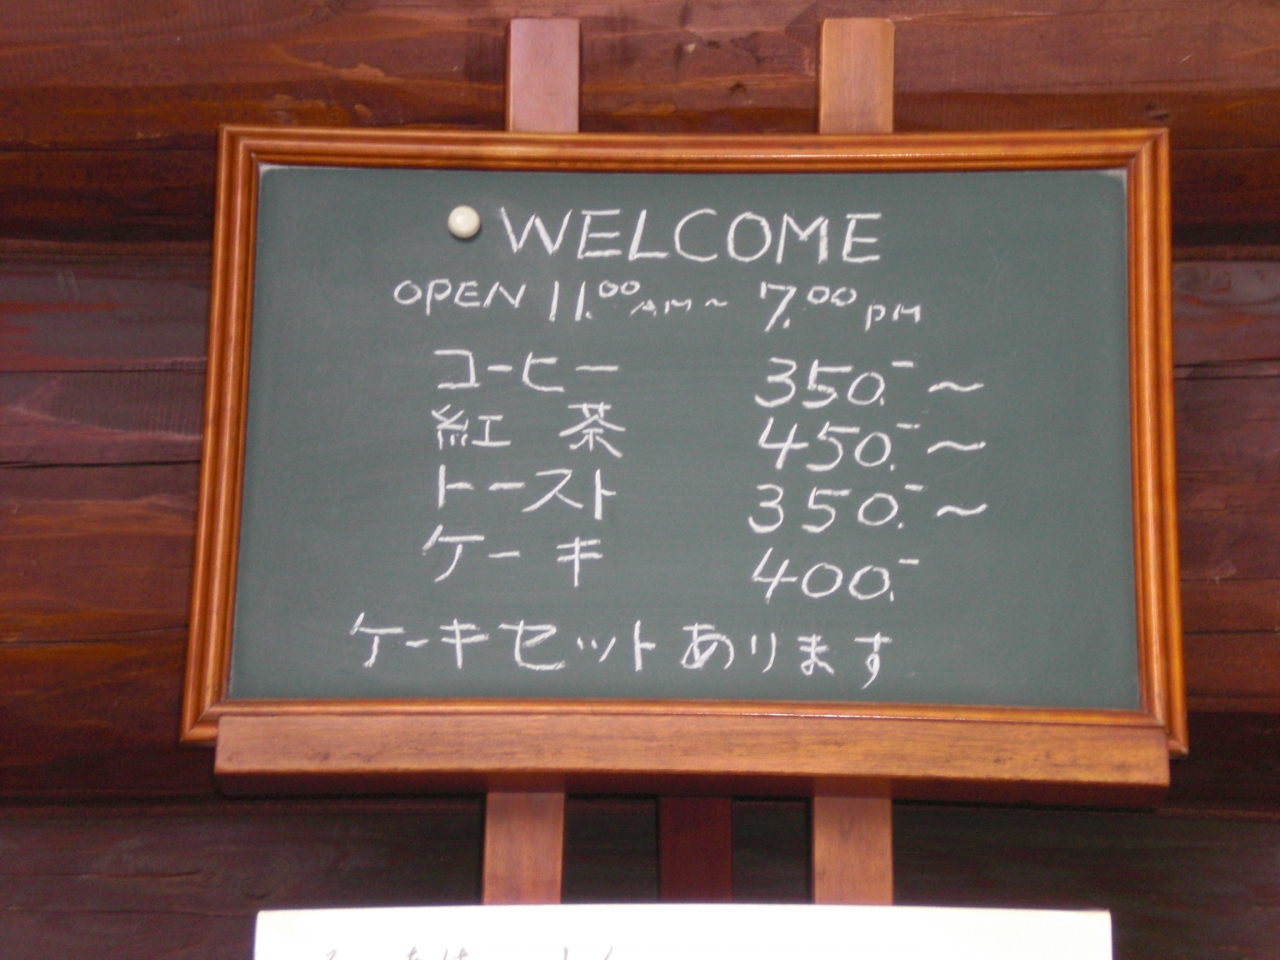 WELCOME
OPEN 11.00 AM ~ 7.00 PM
コーヒー 350.- ~
紅 茶 450.- ~
トースト 350.- ~
ケーキ 400.-
ケーキセットあります